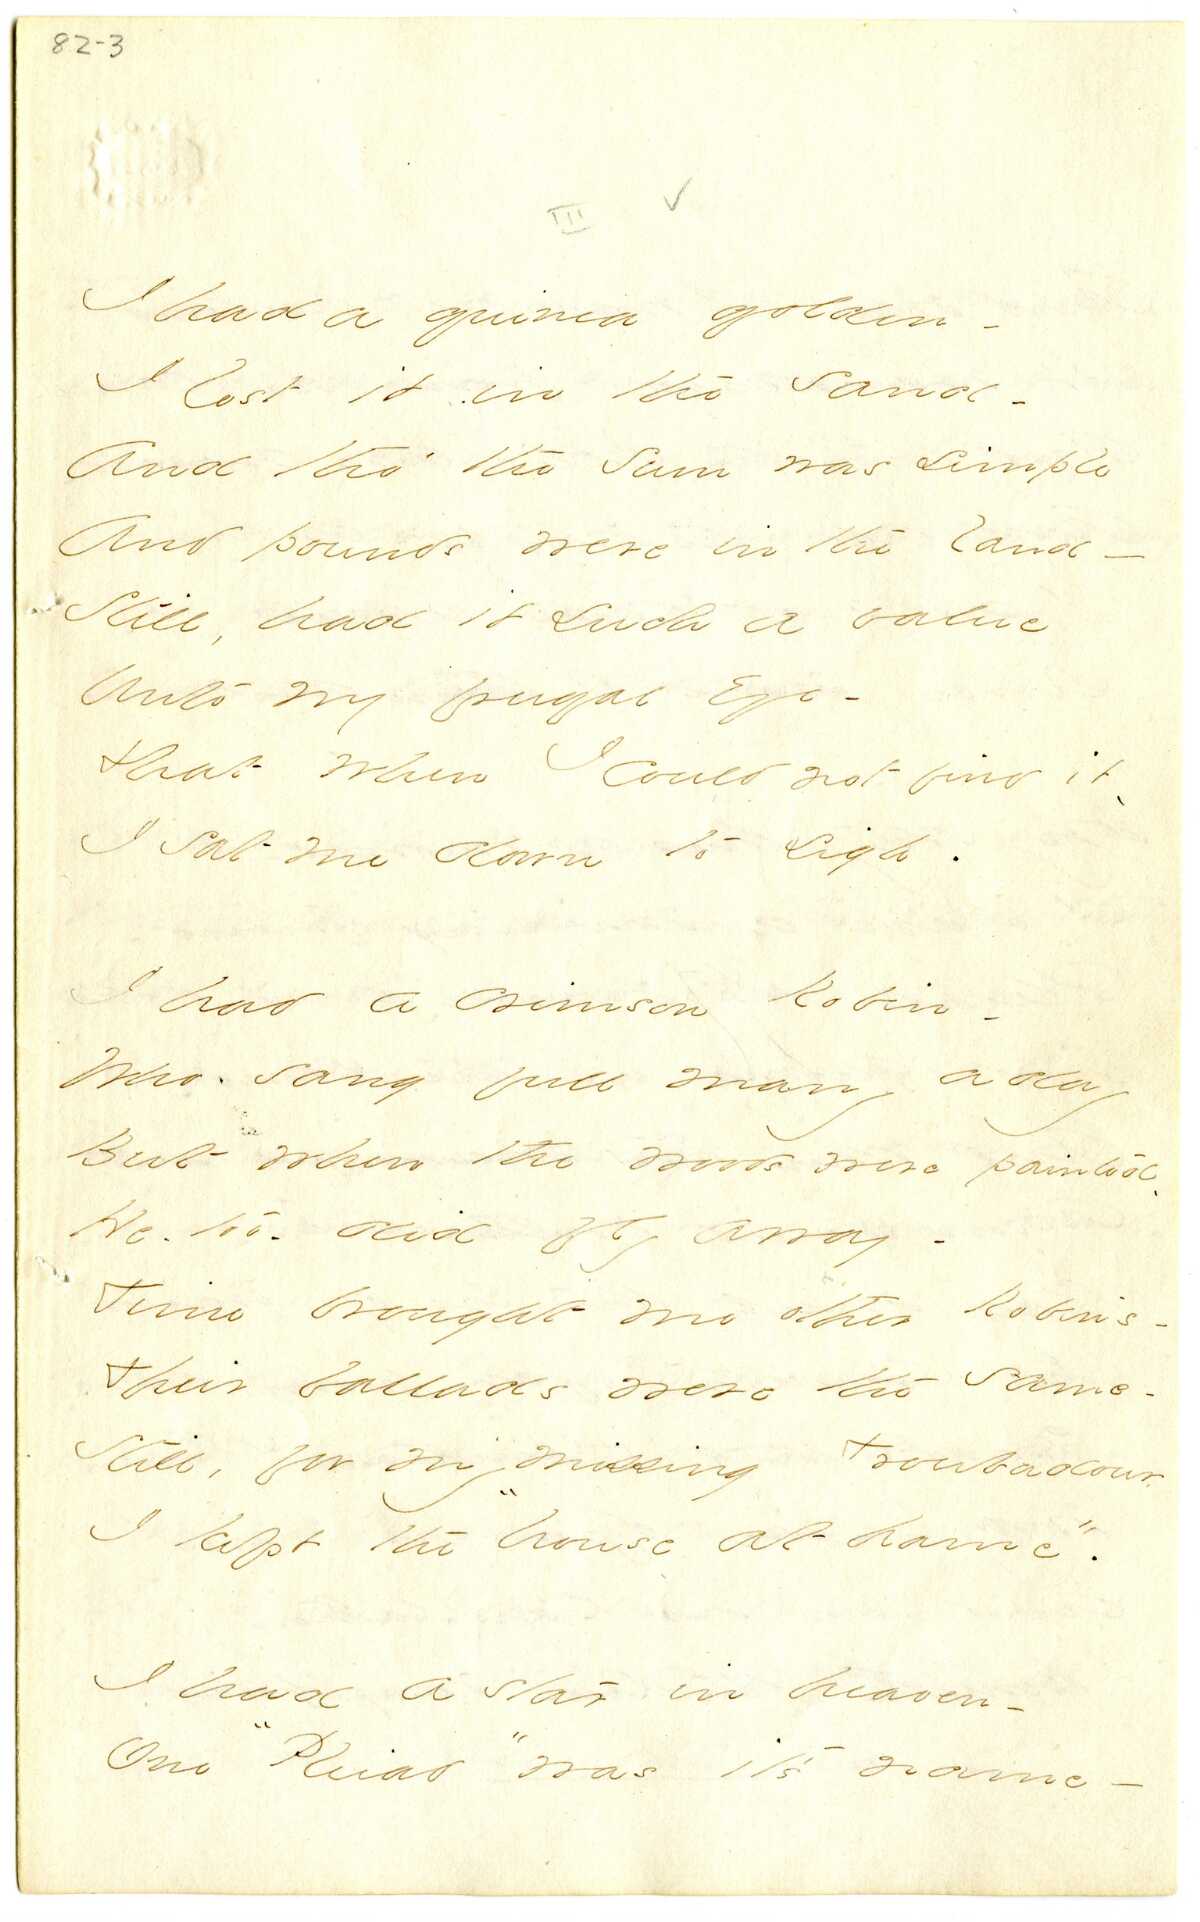 82-3
III ✓
I had a guinea golden -
I lost it in the sand -
And tho' the sum was simple
And pounds were in the land -
Still, had it such a value
Unto my frugal Eye -
That when I could not find it,
I sat me down to sigh.
I had a crimson Robin -
Who sang full many a day
But when the woods were painted,
He - too - did fly away -
Time brought me other Robins -
Their ballads were the same -
Still, for my missing Troubadour
I kept the "house at hame".
I had a star in heaven -
One "Pleiad" was its name -